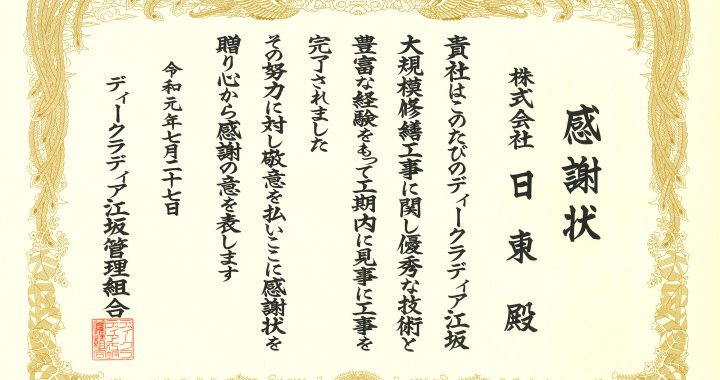 感謝状
株式会社 日東 殿
貴社はこのたびのディークラディア江坂
大規模修繕工事に関し優秀な技術と
豊富な経験をもって工期内に見事に工事を
完了されました
その努力に対し敬意を払いここに感謝状を
贈り心から感謝の意を表します
令和元年七月二十七日
ディークラディア江坂管理組合